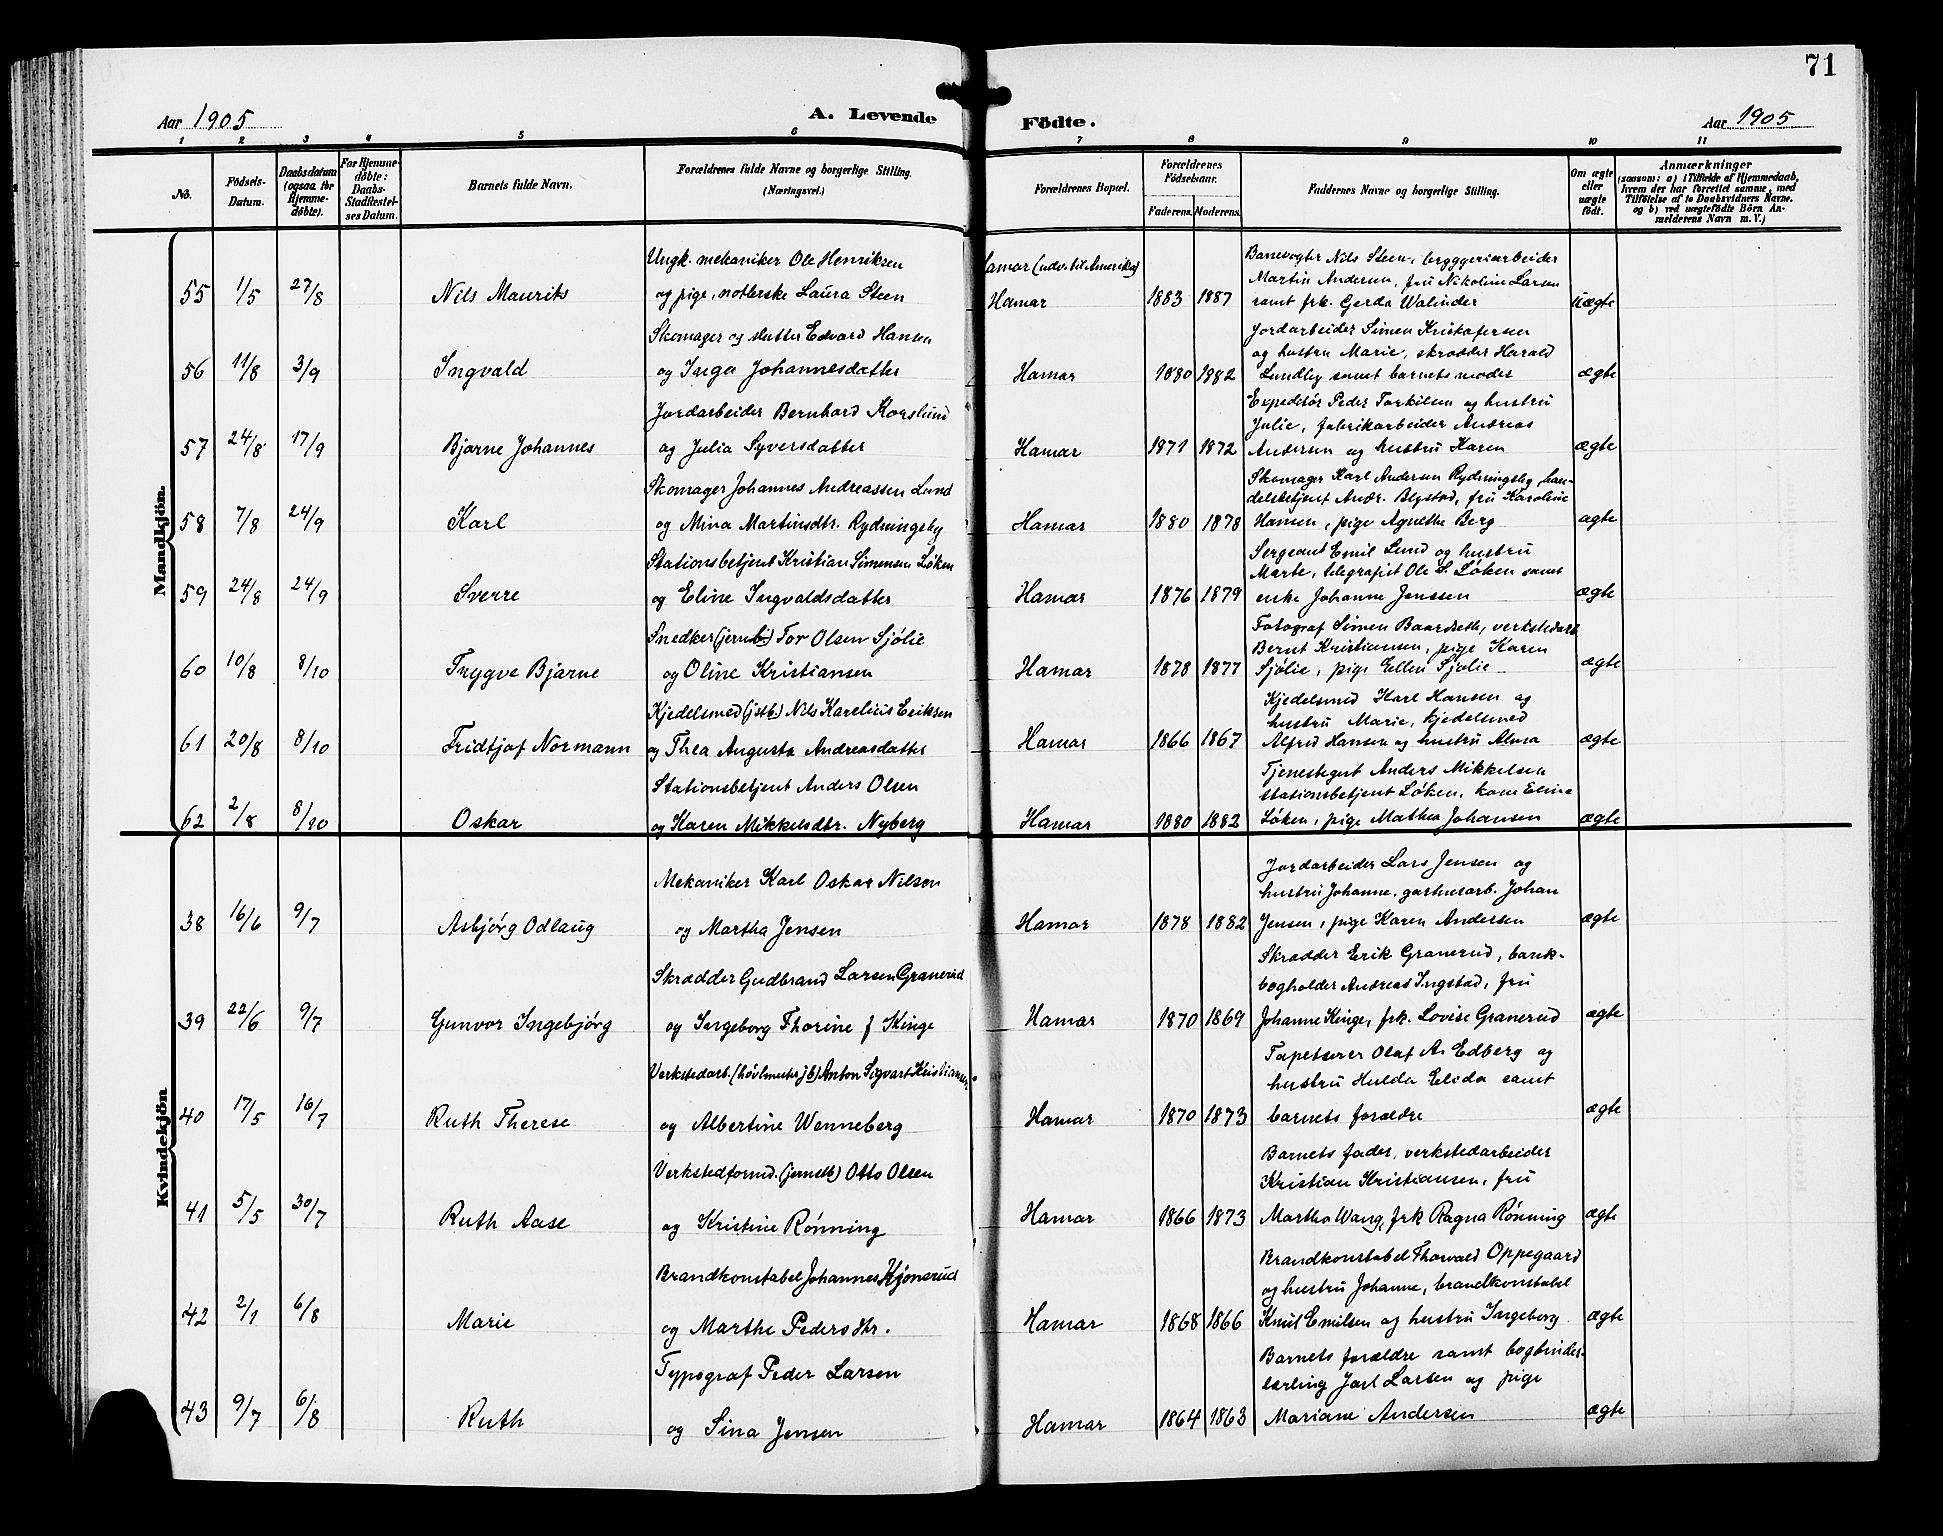 71
Aar 1905
A. Levende
Födte.
Aar 1905
1 2 3 4 5 6 7 8 9 10 11
No.
Födsels-
Datum.
Daabsdatum
(ogsaa for
Hjemme-
döbte).
For Hjemme-
döbte:
Daabs-
Stadfæstel-
ses Datum.
Barnets fulde Navn.
Forældrenes fulde Navne og borgerlige Stilling.
(Næringsvei.)
Forældrenes Bopæl.
Forældrenes
Födselsaar.
Faderens. Moderens.
Faddernes Navne og borgerlige Stilling.
Om ægte
eller
uægte
födt.
Anmærkninger
(saasom: a) i Tilfælde af Hjemmedaab,
hvem der har forrettet samme, med
Tilföielse af to Daabsvidners Navne.
og b) ved uægtefödte Börn An-
melderens Navn m. V.)
Mandkjön.
Ungk. mekaniker Ole Henriksen
Hamar (udv. til Amerika)
Banevogter Nils Steen, bryggeriarbeider
Martin Andersen, fru Nikoline Larsen
55 1/5 27/8 Nils Maurits og pige, Laura Steen Hamar 1883 1887 samt frk. Gerda Walinder uægte
Skomager og Edvard Hansen
Jordarbeider Simen Kristofersen
og hustru Marie, skrædder Harald
56 11/8 3/9 Ingvald og Inga Johannesdatter Hamar 1880 1882 Lundby samt barnets moder ægte
Jordarbeider Bernhard Korslund
Expeditör Peder Torkilsen og hustru
Julie, fabrikarbeider Andreas
57 24/8 17/9 Bjarne Johannes og Julia Syversdatter Hamar 1871 1872 Andersen og hustru Karen ægte
Skomager Johannes Andreassen Lund
Skomager Karl Andersen Rydningsby, han-
delsbetjent Andr. Blystad, fru Karoline
58 7/8 24/9 Karl og Mina Martinsdtr. Rydningsby Hamar 1880 1878 Hansen, pige Agnethe Berg ægte
Stationsbetjent Kristian Simensen Löken
Sergeant Emil Lund og hustru
Marte, telegrafist Ole S. Löken samt
59 24/8 24/9 Sverre og Eline Ingvaldsdatter Hamar 1876 1879 enke Johanne Jenssen ægte
Snedker (jernb.) Tor Olsen Sjölie
Fotograf Simen Baardseth, verkstedarb.
Bernt Kristiansen, pige Karen
60 10/8 8/10 Trygve Bjarne og Oline Kristiansen Hamar 1878 1877 Sjölie, pige Ellen Sjölie ægte
Kjedelsmed (jstb.) Nils Karelius Eriksen
Kjedelsmed Karl Hansen og
hustru Marie, kjedelsmed
61 20/8 8/10 Fridtjof Normann og Thea Augusta Andreasdatter Hamar 1866 1867 Alfred Hansen og hustru Alma ægte
Stationsbetjent Anders Olsen
Tjenestegut Anders Mikkelsen
stationsbetjent Löken, kone Eline
62 2/8 8/10 Oskar og Karen Mikkelsdtr. Nyberg Hamar 1880 1882 Löken, pige Mathea Johansen ægte
Kvindekjön
Mekaniker Karl Oskar Nilsen
Jordarbeider Lars Jensen og
hustru Johanne, gashusarb. Johan
38 16/6 9/7 Asbjörg Odlaug og Martha Jensen Hamar 1878 1882 Jensen, pige Karen Andersen ægte
Skrædder Gudbrand Larsen Granerud
Skrædder Erik Granerud, bank-
bogholder Andreas Ingstad, fru
39 22/6 9/7 Gunvor Ingebjörg og Ingeborg Thorine f Kinge Hamar 1870 1869 Johanne Kinge, frk. Lovise Granerud ægte
Verkstedarb. (hövlmester jb) Anton Sigvart Kristiansen
Tapetserer Olaf A. Edberg og
hustru Hulda Elida samt
40 17/5 16/7 Ruth Therese og Albertine Wenneberg Hamar 1870 1873 barnets forældre ægte
Verkstedformd. (jernstb) Otto Olsen
Barnets fader, verkstedarbeider
Kristian Kristiansen, fru
41 5/5 30/7 Ruth Aase og Kristine Rönning Hamar 1866 1873 Martha Wang, frk Ragna Rönning ægte
Brandkonstabel Johannes Kjonerud
Brandkonstabel Thorvald Oppegaard
og hustru Johanne, brandkonstabel
42 2/1 6/8 Marie og Marthe Pedersdtr. Hamar 1868 1866 Knut Emilsen og hustru Ingeborg ægte
Typograf Peder Larsen
Barnets forældre samt bogbinder-
lærling Jarl Larsen og pige
43 9/7 6/8 Ruth og Sina Jensen Hamar 1864 1863 Mariane Andersen ægte